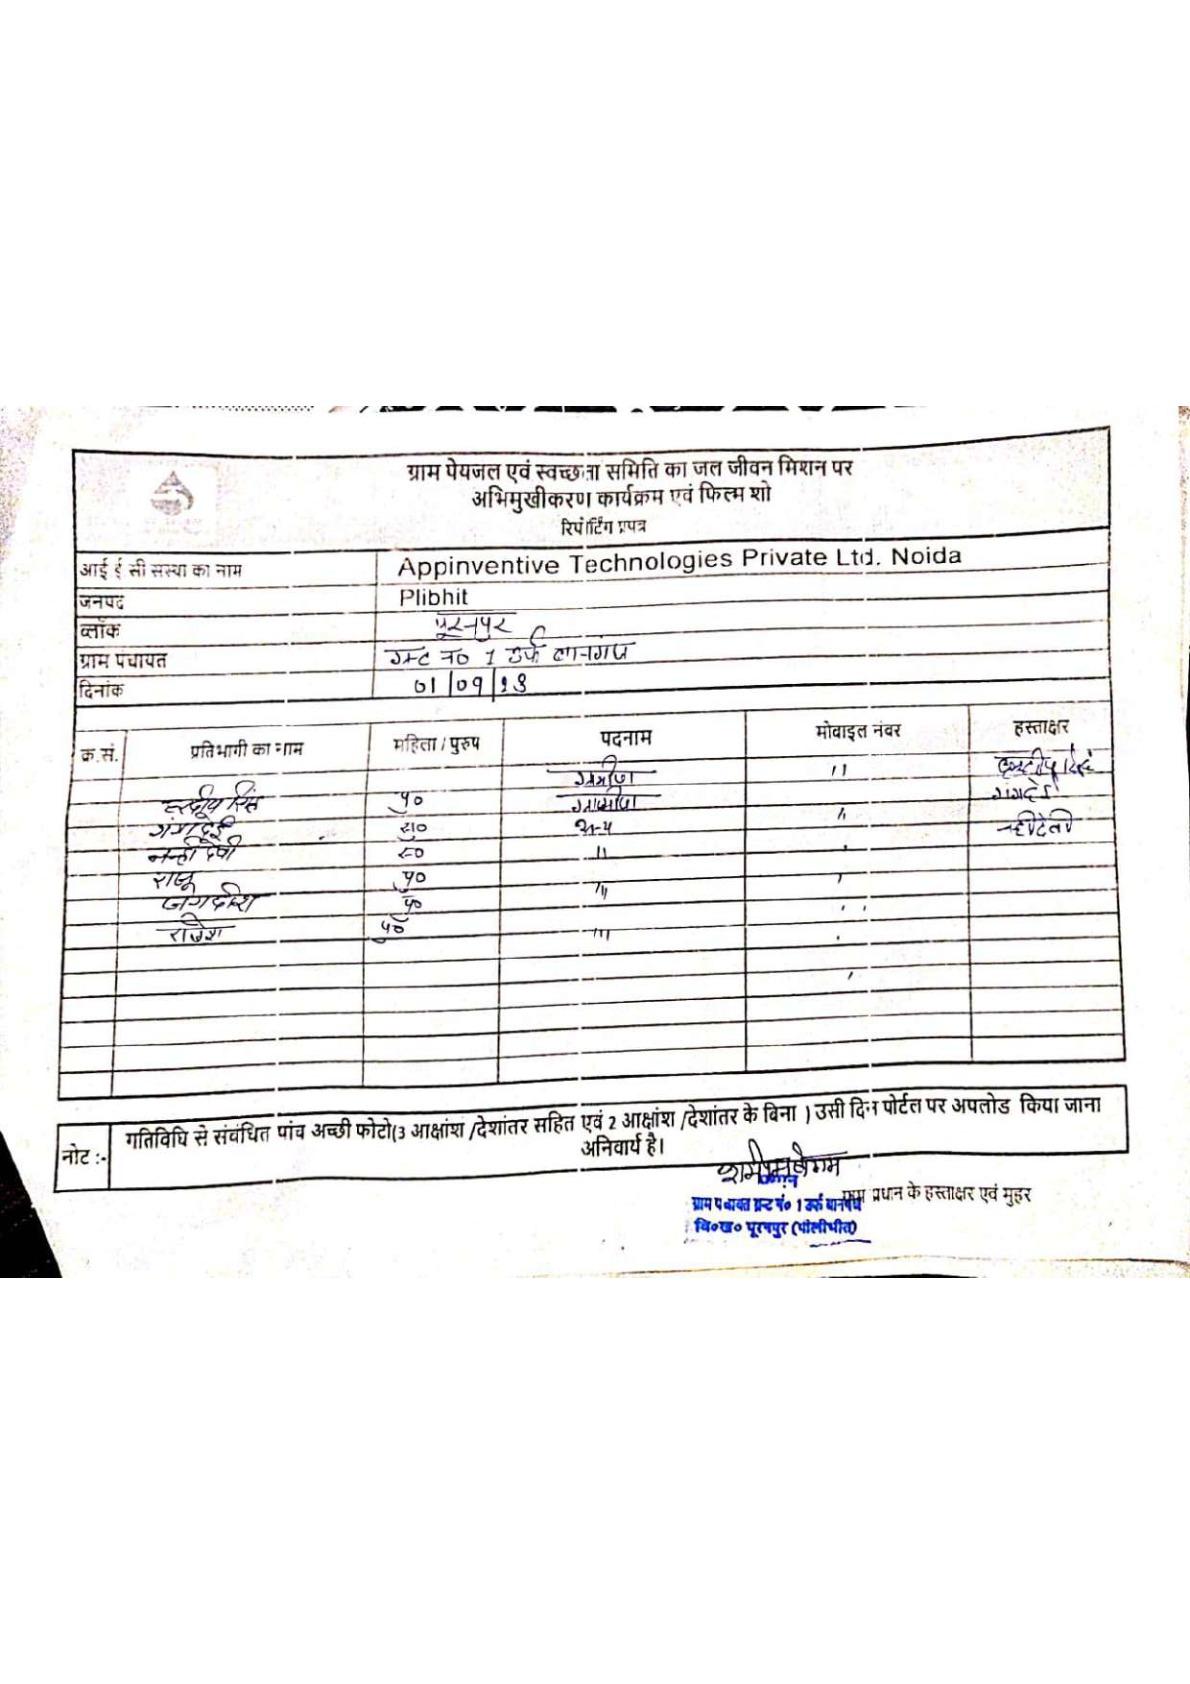 ग्राम पेयजल एवं स्वच्छता समिति का जल जीवन मिशन पर
अभिमुखीकरण कार्यक्रम एवं फिल्म शो
रिपोर्टिंग प्रपत्र
आई ई सी सस्था का नाम Appinventive Technologies Private Ltd. Noida
जनपद Plibhit
ब्लॉक पूरनपुर
ग्राम पंचायत ग्रन्ट न० 1 उर्फ
दिनांक 01/09/
क्र.सं. प्रतिभागी का नाम महिला / पुरुष पदनाम मोबाइल नंबर हस्ताक्षर
ग्रामीण 11
हरदीप सिंह पु० ग्रामीण
गंगा देई
नन्ही देवी 11
राजू पु०
जगदीश पु०
राजेश पु०
नोट :- गतिविधि से संबंधित पांच अच्छी फोटो(3 आक्षांश /देशांतर सहित एवं 2 आक्षांश /देशांतर के बिना ) उसी दिन पोर्टल पर अपलोड किया जाना
अनिवार्य है।
प्रधान
ग्राम प्रधान के हस्ताक्षर एवं मुहर
ग्राम पंचायत ग्रन्ट नं० 1 उर्फ
वि०ख० पूरनपुर (पीलीभीत)